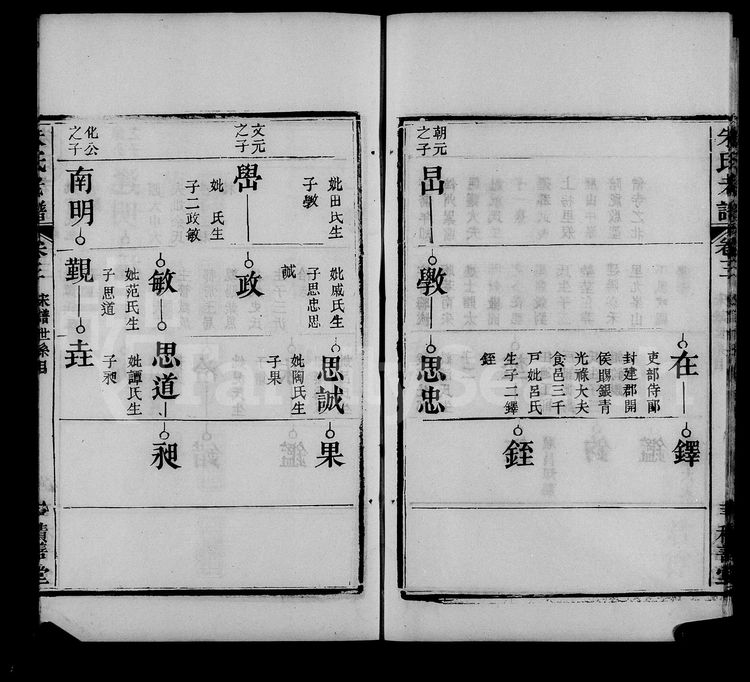 朝元之子
昌
斆
思忠
在
吏部侍郎
封建郡開
侯賜銀青
光祿大夫
食邑三千
戸妣呂氏
生子二鐸
銍
鐸
銍
妣田氏生
子斆
妣戚氏生
子思忠思
誠
思誠
妣陶氏生
子果
果
文元之子
嚳
妣 氏生
子二政敏
政
敏
妣范氏生
子思道
思道
妣譚氏生
子昶
昶
化公之子
南明
觀
垚
朱氏宗譜
卷三
宋譜世系图
積善堂